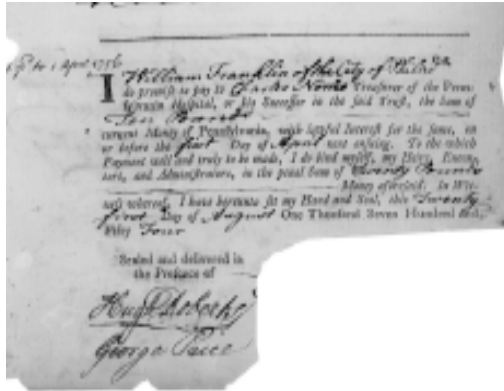 to 1 April 1756
I William Franklin of the City of Philad.a
do promise to pay to Charles Norris Treasurer of the Penn-
sylvania Hospital, or his Successor in the said Trust, the Sum of
Ten Pounds
current Money of Pennsylvania, with lawful Interest for the same, on
or before the first Day of April next ensuing. To the which
Payment well and truly to be made, I do bind myself, my Heirs, Execu-
tors, and Administrators, in the penal Sum of Twenty Pounds
Money aforesaid. In Wit-
ness whereof, I have hereunto set my Hand and Seal, this Twenty
first Day of August One Thousand Seven Hundred and
Fifty Four
Sealed and delivered in
the Presence of
Hugh Roberts
George